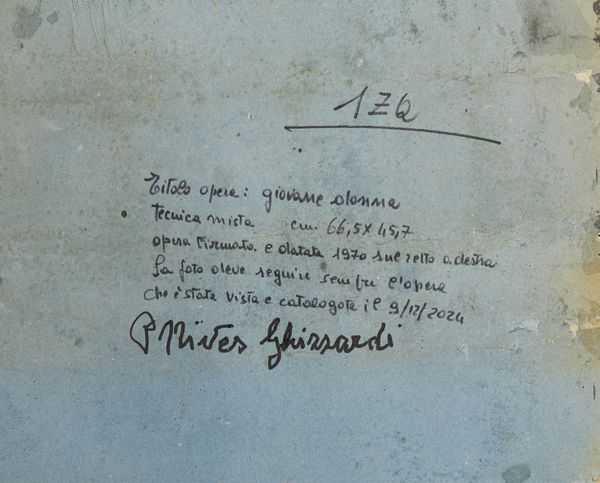 17Q
Titolo opera: giovane donna
tecnica mista cm. 66,5x45,7
opera firmata e datata 1970 sul retto a destra
La foto deve seguire sempre l'opera
che è stata vista e catalogata il 9/12/2024
P Nives Ghizzardi